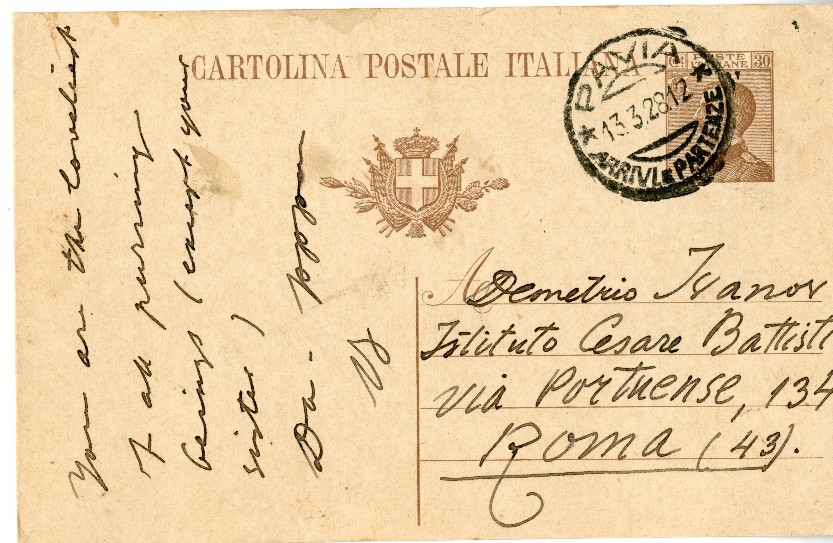 CARTOLINA POSTALE ITALIANA
POSTE
30
PAVIA
13.3.28 12
ARRIVI e PARTENZE
Demetrio Ivanov
Istituto Cesare Battisti
Via Portuense, 134
Roma (43).
You are the loveliest
of all purring
beings (except your
sister)
Da -